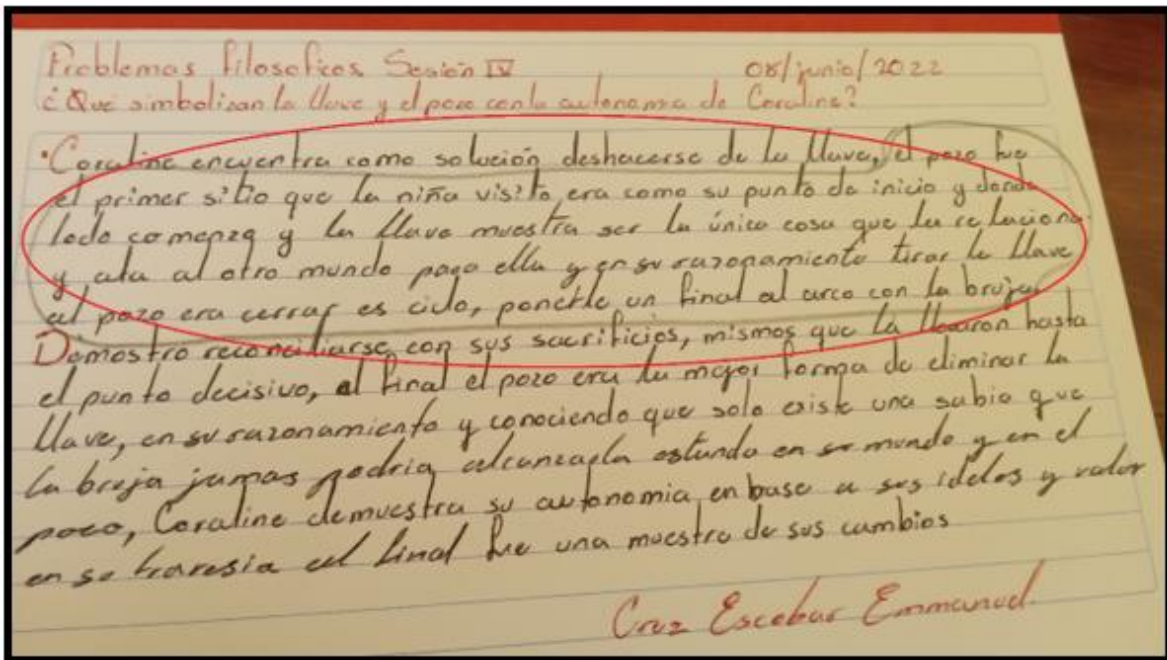 Problemas filosoficos Sesión IV 08/junio/2022
¿Qué simbolizan la llave y el pozo con la autonomia de Coraline?
•Coraline encuentra como solución deshacerse de la llave, el pozo fue
el primer sitio que la niña visito, era como su punto de inicio y donde
todo comenzq y la llave muestra ser la única cosa que la relaciona
y ata al otro mundo paga ella y en su razonamiento tirar la llave
al pozo era cerrar es ciclo, ponerle un final al arco con la bruja.
Demostro reconciliarse con sus sacrificios, mismos que la llevaron hasta
el punto decisivo, al final el pozo era la mejor forma de eliminar la
llave, en su razonamiento y conociendo que solo existe una sabia que
la bruja jamas podria alcanzarla estando en su mundo y en el
pozo, Coraline demuestra su autonomia en base a sus ideles y valor
en su travesia al final fue una muestra de sus cambios
Cruz Escobar Emmanuel